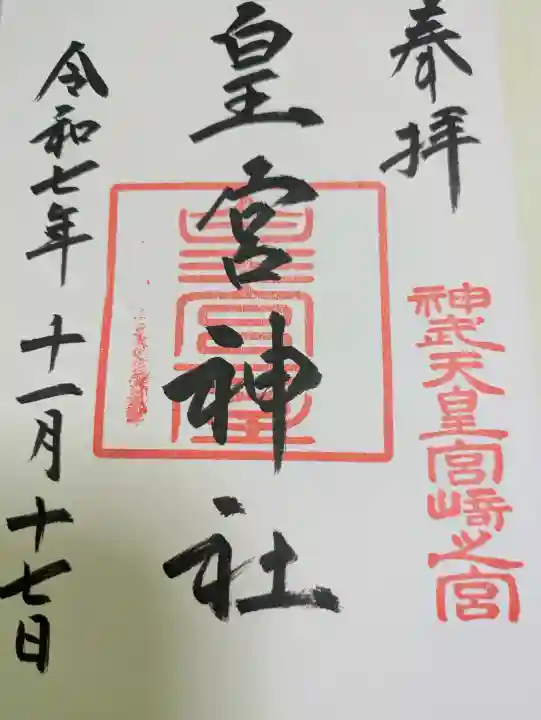 奉拝
神武天皇宮崎之宮
皇宮神社
令和七年 十一月十七日